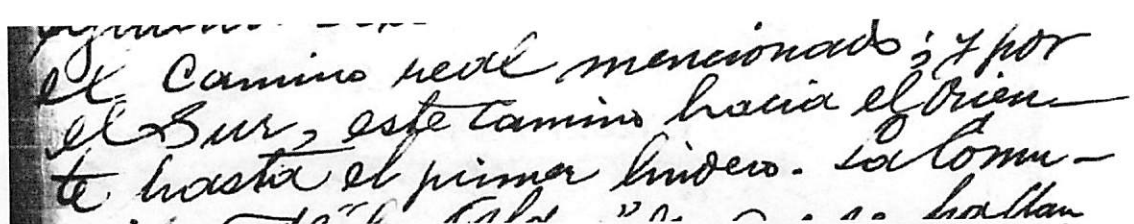 el Camino real mencionado; y por
el Sur, este Camino hacia el Orien-
te hasta el primer lindero. La Comu-
hallan